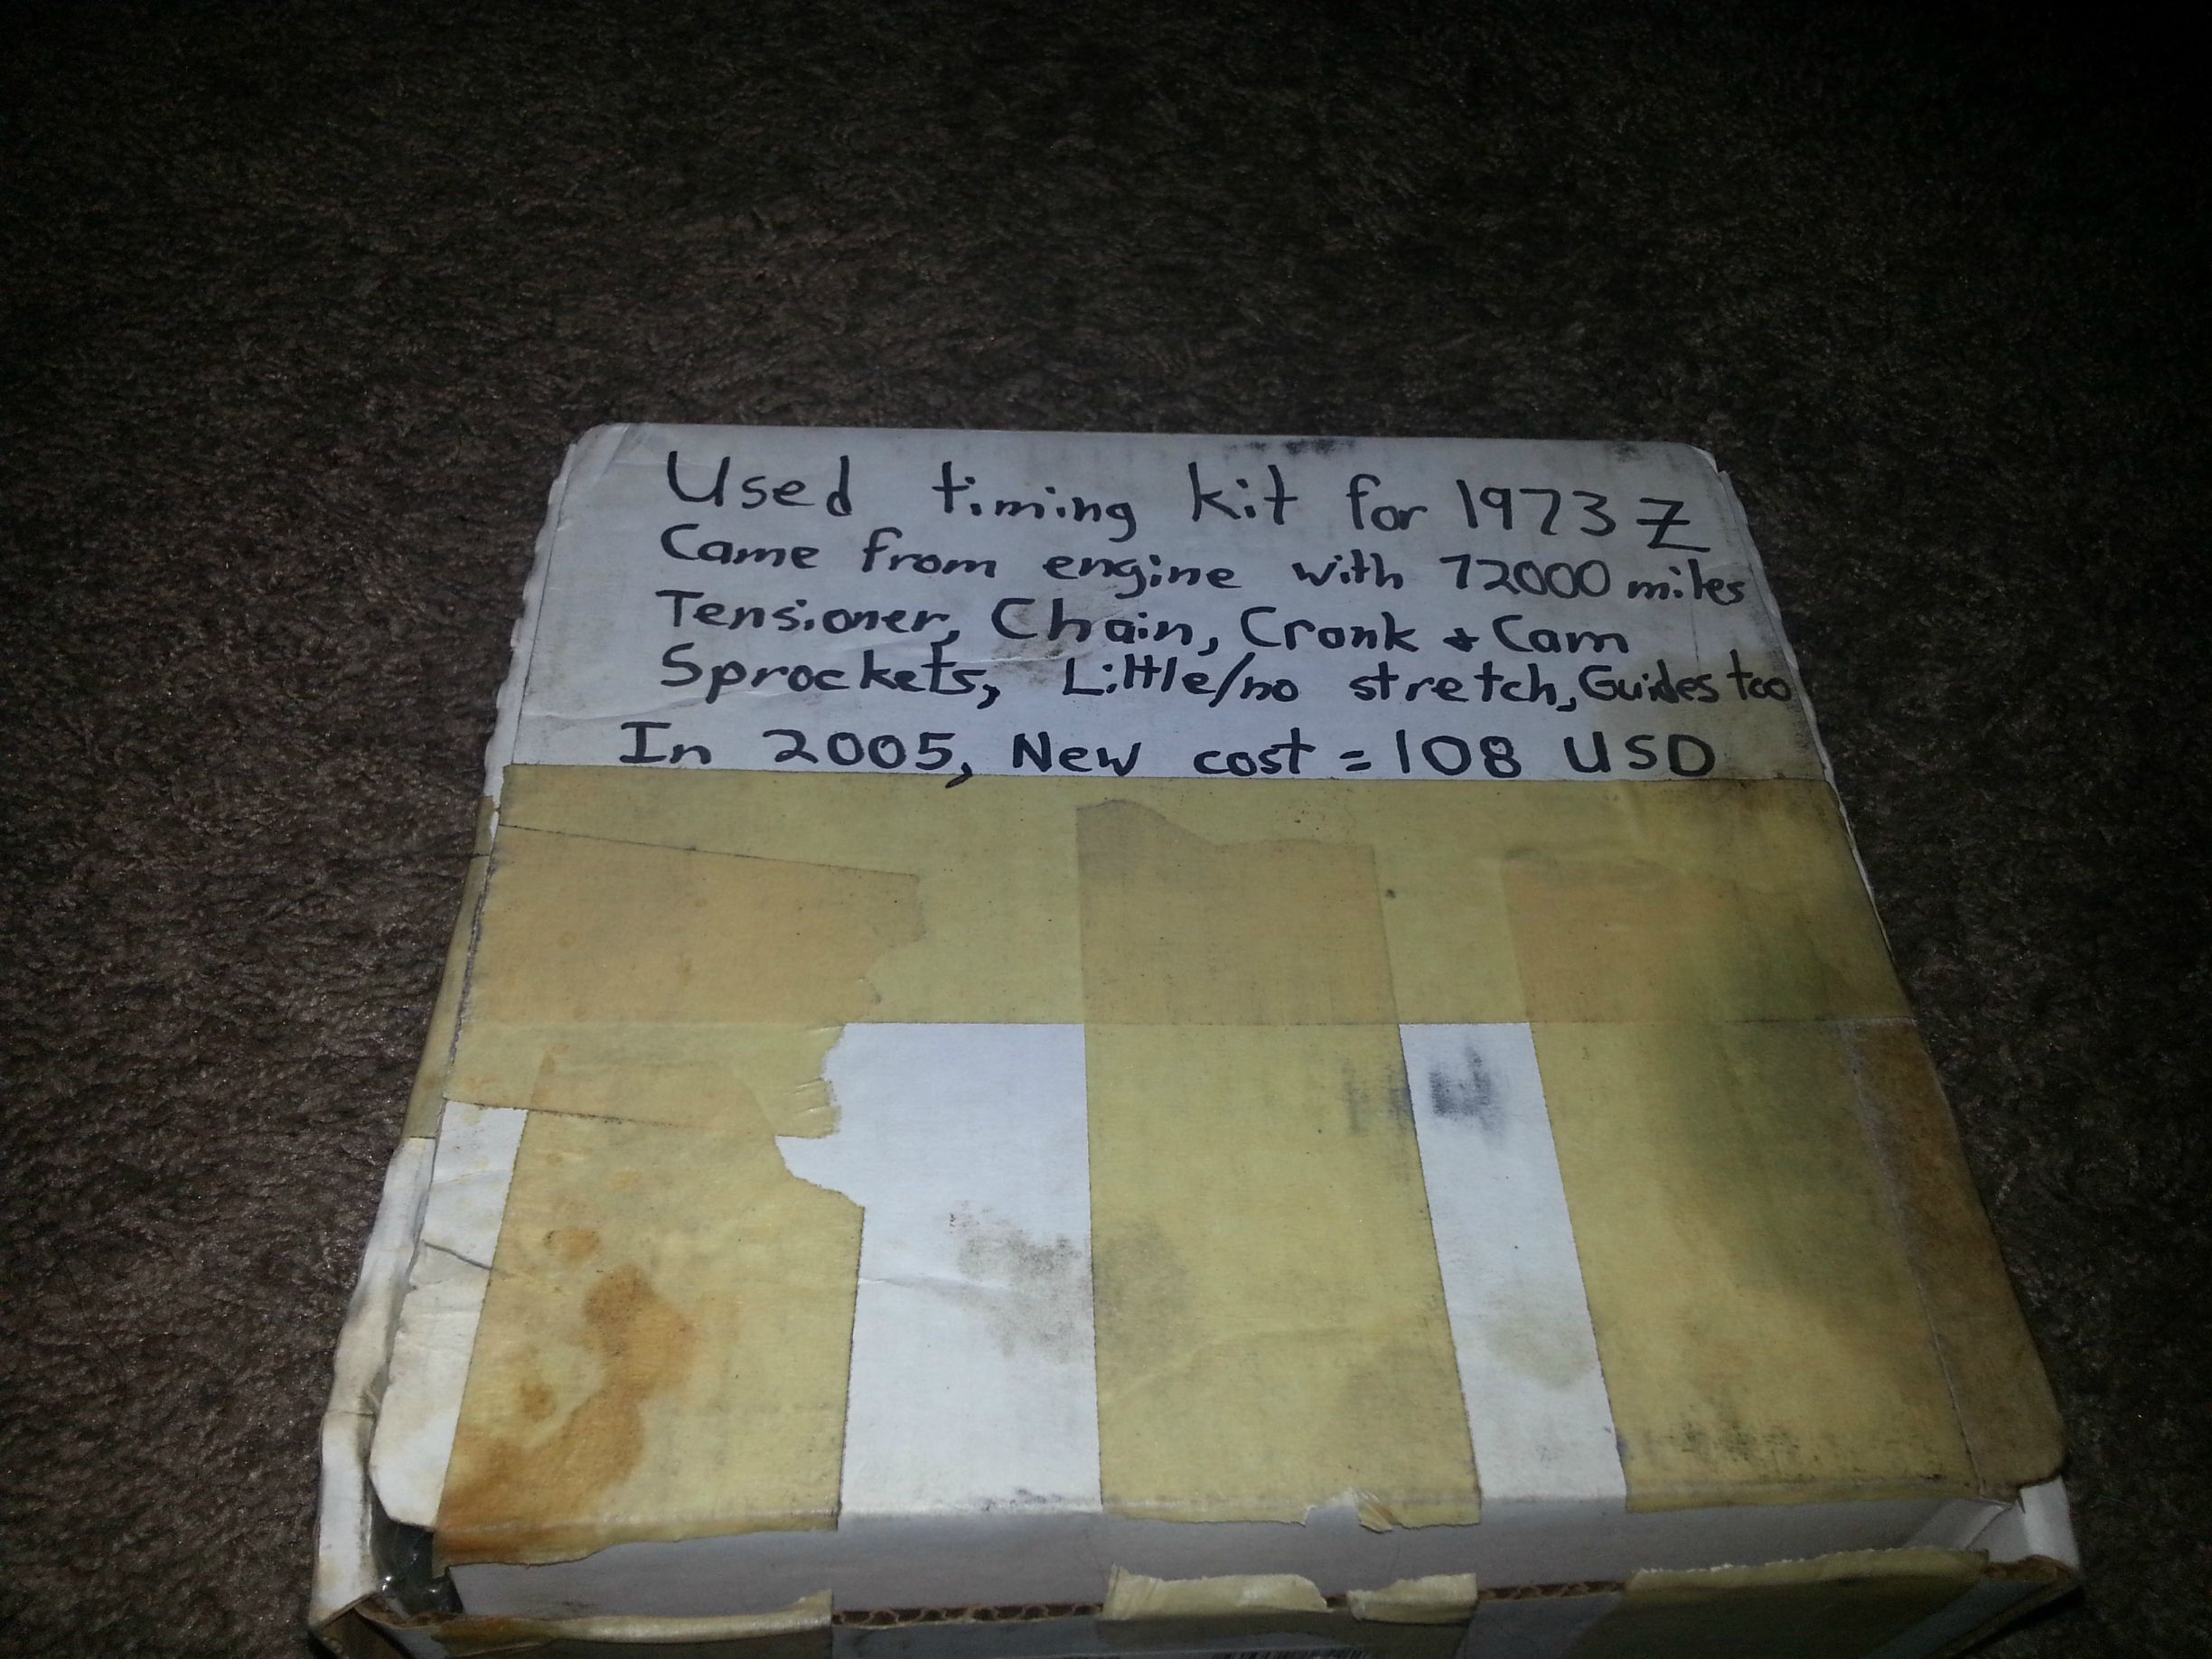 Used timing kit for 1973 Z
Came from engine with 72000 miles
Tensioner, Chain, Crank + Cam
Sprockets, Little/no stretch, Guides too
In 2005, New cost = 108 USD